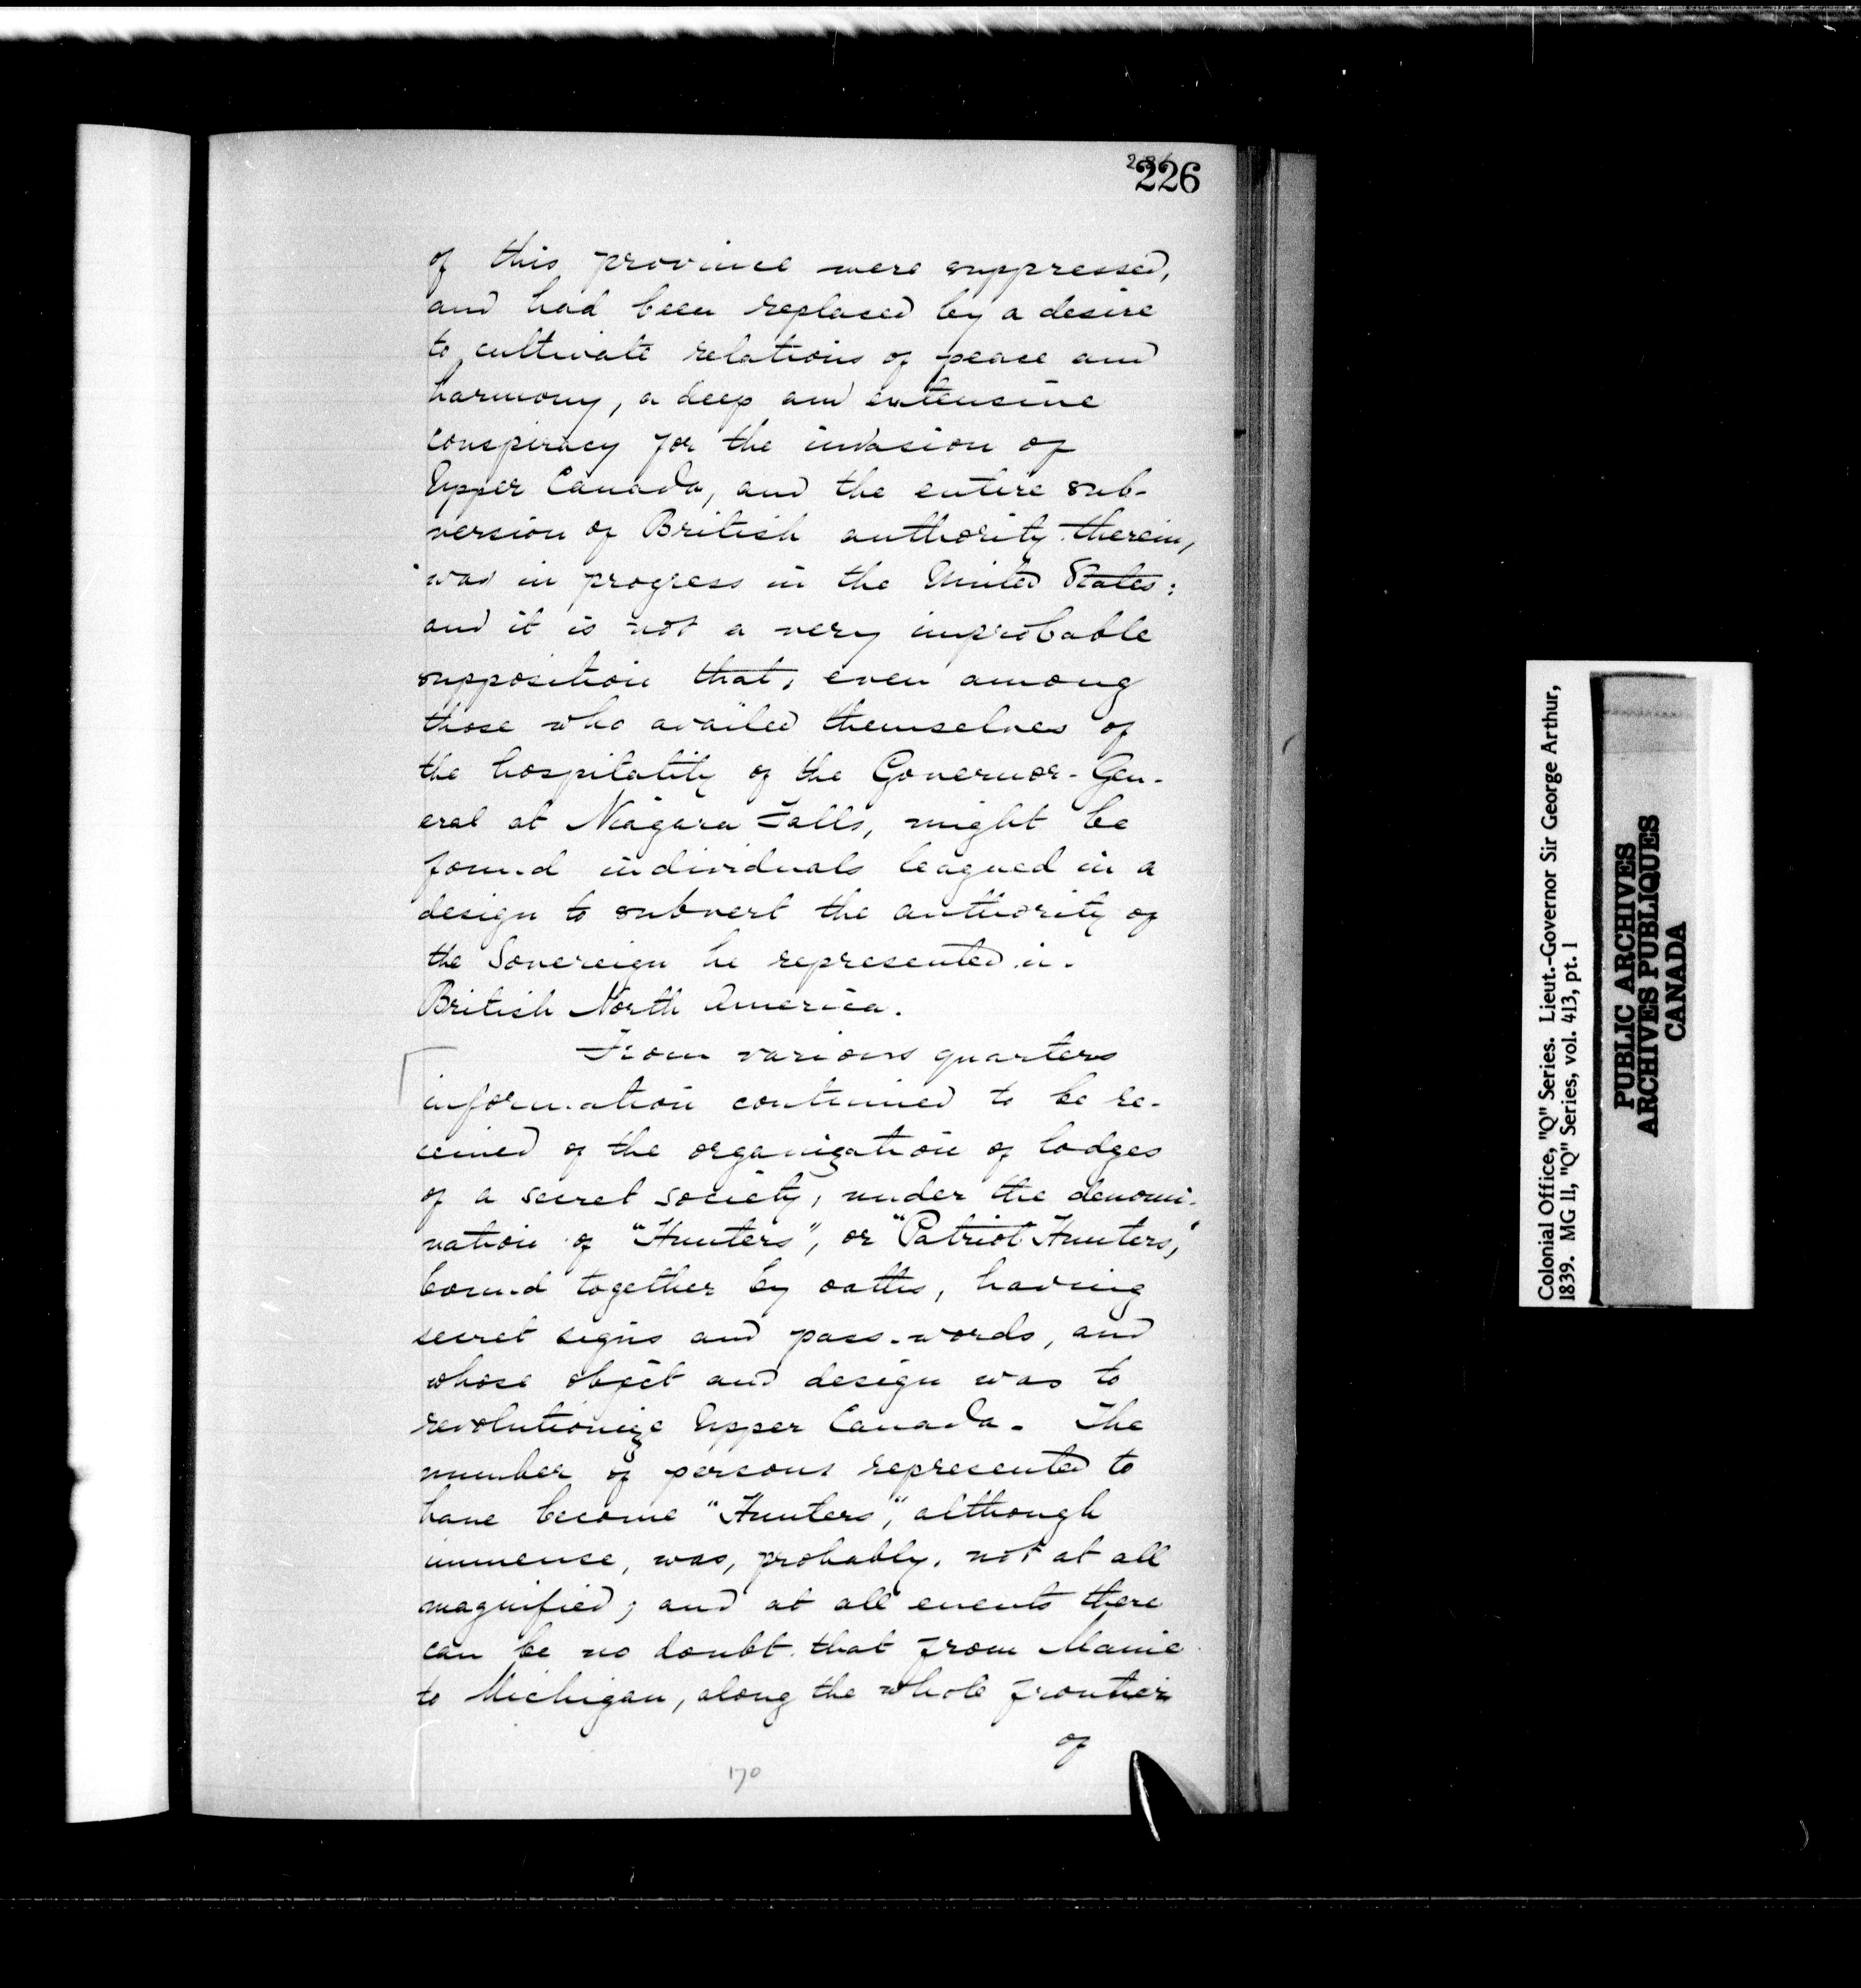 226
of this province were suppressed,
and had been replaced by a desire
to cultivate relations of peace and
harmony, a deep and extensive
conspiracy for the invasion of
Upper Canada, and the entire sub-
version of British authority therein,
was in progress in the United States:
and it is not a very improbable
supposition that, even among
those who availed themselves of
the hospitality of the Governor-Gen-
eral at Niagara Falls, might be
found individuals leagued in a
design to subvert the authority of
the Sovereign he represented in
British North America.
From various quarters
information continued to be re-
ceived of the organization of lodges
of a secret society, under the denomi-
nation of "Hunters", or "Patriot Hunters,"
bound together by oaths, having
secret signs and pass-words, and
whose object and design was to
revolutionize Upper Canada. The
number of persons represented to
have become "Hunters," although
immense, was, probably, not at all
magnified; and at all events there
can be no doubt that from Maine
to Michigan, along the whole frontier
of
170
Colonial Office, "Q" Series. Lieut.-Governor Sir George Arthur,
1839. MG 11, "Q" Series, vol. 413, pt. 1
PUBLIC ARCHIVES
ARCHIVES PUBLIQUES
CANADA